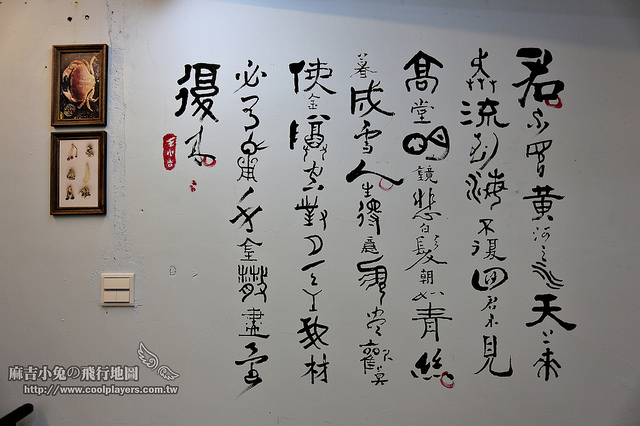 君不見黃河之水天上來
奔流到海不復回君不見
高堂明鏡悲白髮朝如青絲
暮成雪人生得意須盡歡莫
使金樽空對月天生我材
必有用千金散盡還
復來
麻吉小兔の飛行地圖
http://www.coolplayers.com.tw